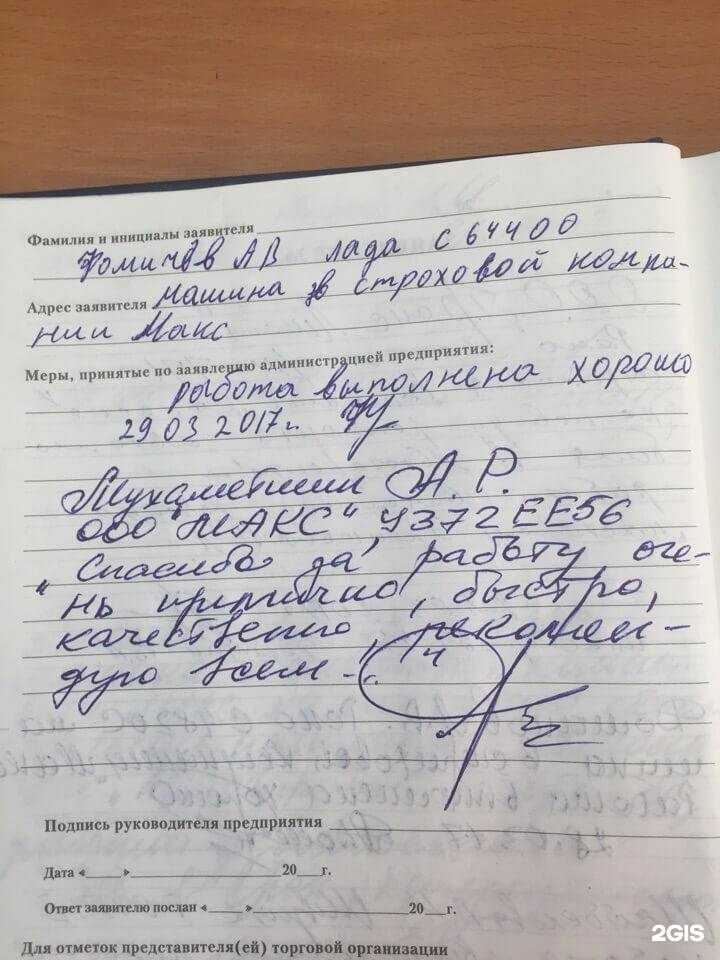 Фамилия и инициалы заявителя
Фомичёв АВ лада с 644 ОО
Адрес заявителя машина в строховой компа-
нии Макс
Меры, принятые по заявлению администрацией предприятия:
работа выполнена хорошо
29 03 2017г.
Мухаметшин А.Р.
ООО "МАКС", У372ЕЕ56
"Спасибо за работу оче-
нь прилично, быстро,
качественно, рекомен-
дую всем
Подпись руководителя предприятия
Дата «___»___20__г.
Ответ заявителю послан «___»___20__г.
Для отметок представителя(ей) торговой организации
2GIS